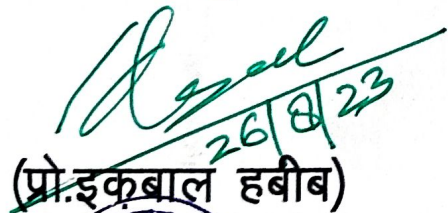 26/8/23
(प्रो.इकबाल हबीब)